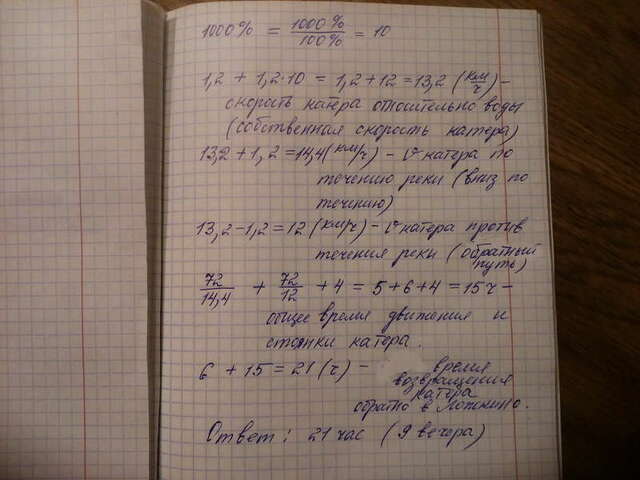 1000% = 1000% / 100% = 10
1,2 + 1,2·10 = 1,2+12 = 13,2 (км/ч) –
скорость катера относительно воды
(собственная скорость катера)
13,2 + 1,2 = 14,4 (км/ч) – v катера по
течению реки (вниз по
течению)
13,2 – 1,2 = 12 (км/ч) – v катера против
течения реки (обратный
путь)
72/14,4 + 72/12 + 4 = 5 + 6 + 4 = 15 ч –
общее время движения и
стоянки катера.
6 + 15 = 21 (ч) – время
возвращения
катера
обратно в Ложкино.
Ответ: 21 час (9 вечера)